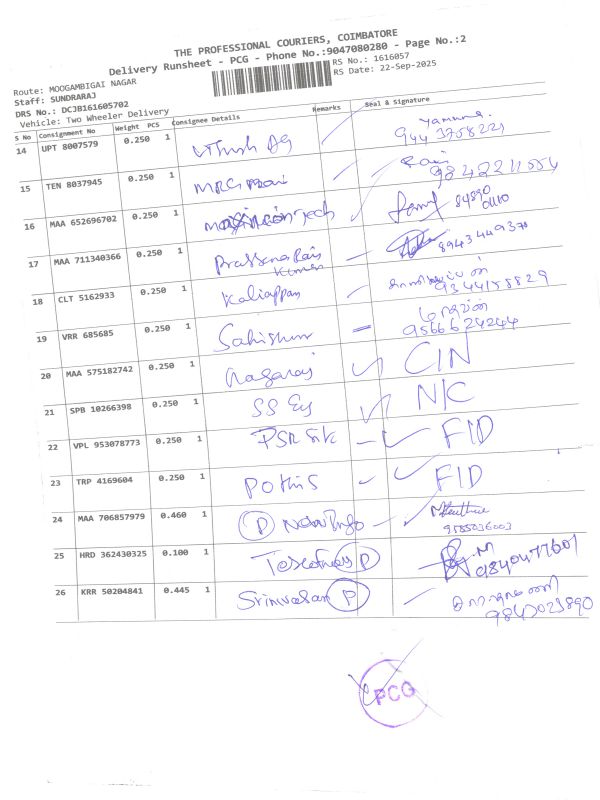 THE PROFESSIONAL COURIERS, COIMBATORE
Delivery Runsheet - PCG - Phone No.:9047080280 - Page No.:2
RS No.: 1616057
RS Date: 22-Sep-2025
Route: MOOGAMBIGAI NAGAR
Staff: SUNDRARAJ
DRS No.: DCJB161605702
Vehicle: Two Wheeler Delivery
S No Consignment No Weight PCS Consignee Details Remarks Seal & Signature
14 UPT 8007579 0.250 1 Yamuna
9443758221
15 TEN 8037945 0.250 1 Ravi
9842211554
16 MAA 652696702 0.250 1
17 MAA 711340366 0.250 1 Prassena
Kumar
18 CLT 5162933 0.250 1 Kaliappan 9344158829
19 VRR 685685 0.250 1
9566624244
20 MAA 575182742 0.250 1 Nagaraj CIN
21 SPB 10266398 0.250 1 N/C
22 VPL 953078773 0.250 1 PSR Silk FID
23 TRP 4169604 0.250 1 Pothis FID
24 MAA 706857979 0.460 1 P Info
9585036003
25 HRD 362430325 0.100 1 P
9840477601
26 KRR 50204841 0.445 1 Srinivasan P
9843023890
PCG